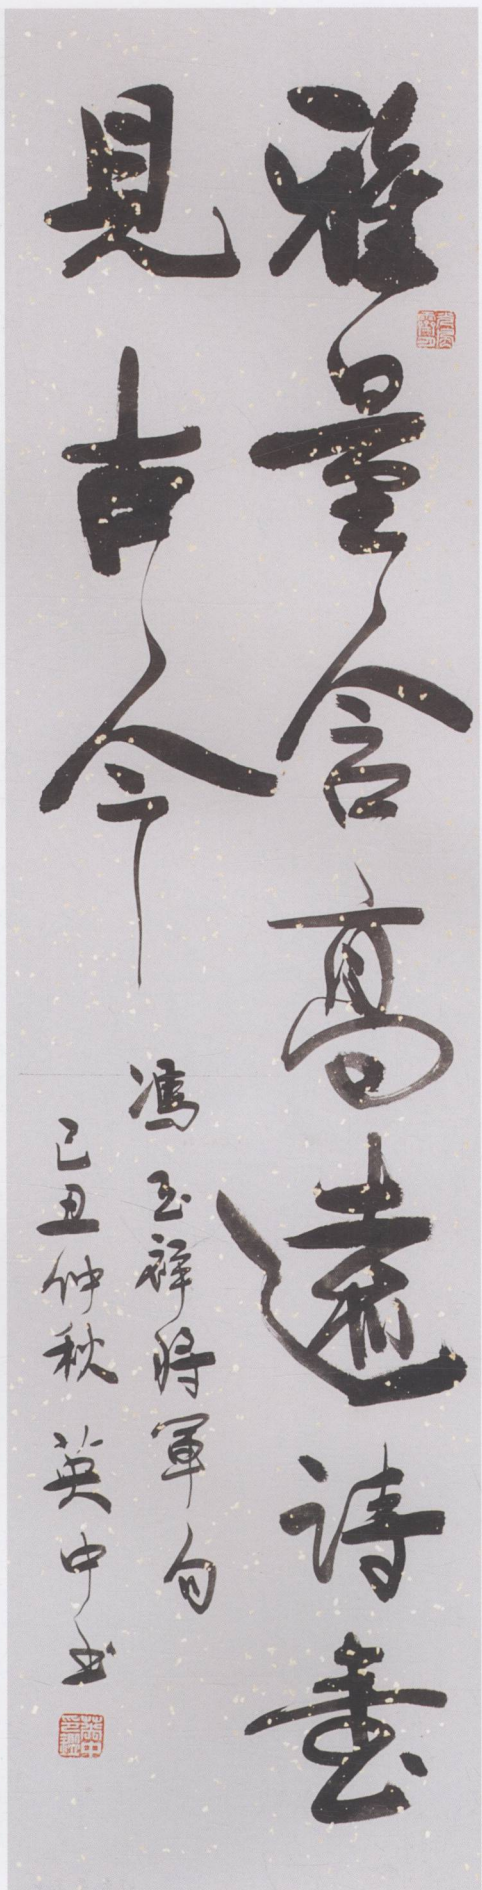 雅量含高遠詩書
見古今
馮玉祥將軍句
己丑仲秋 英中书